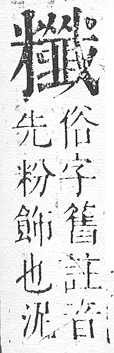 俗字舊註音
先粉飾也泥